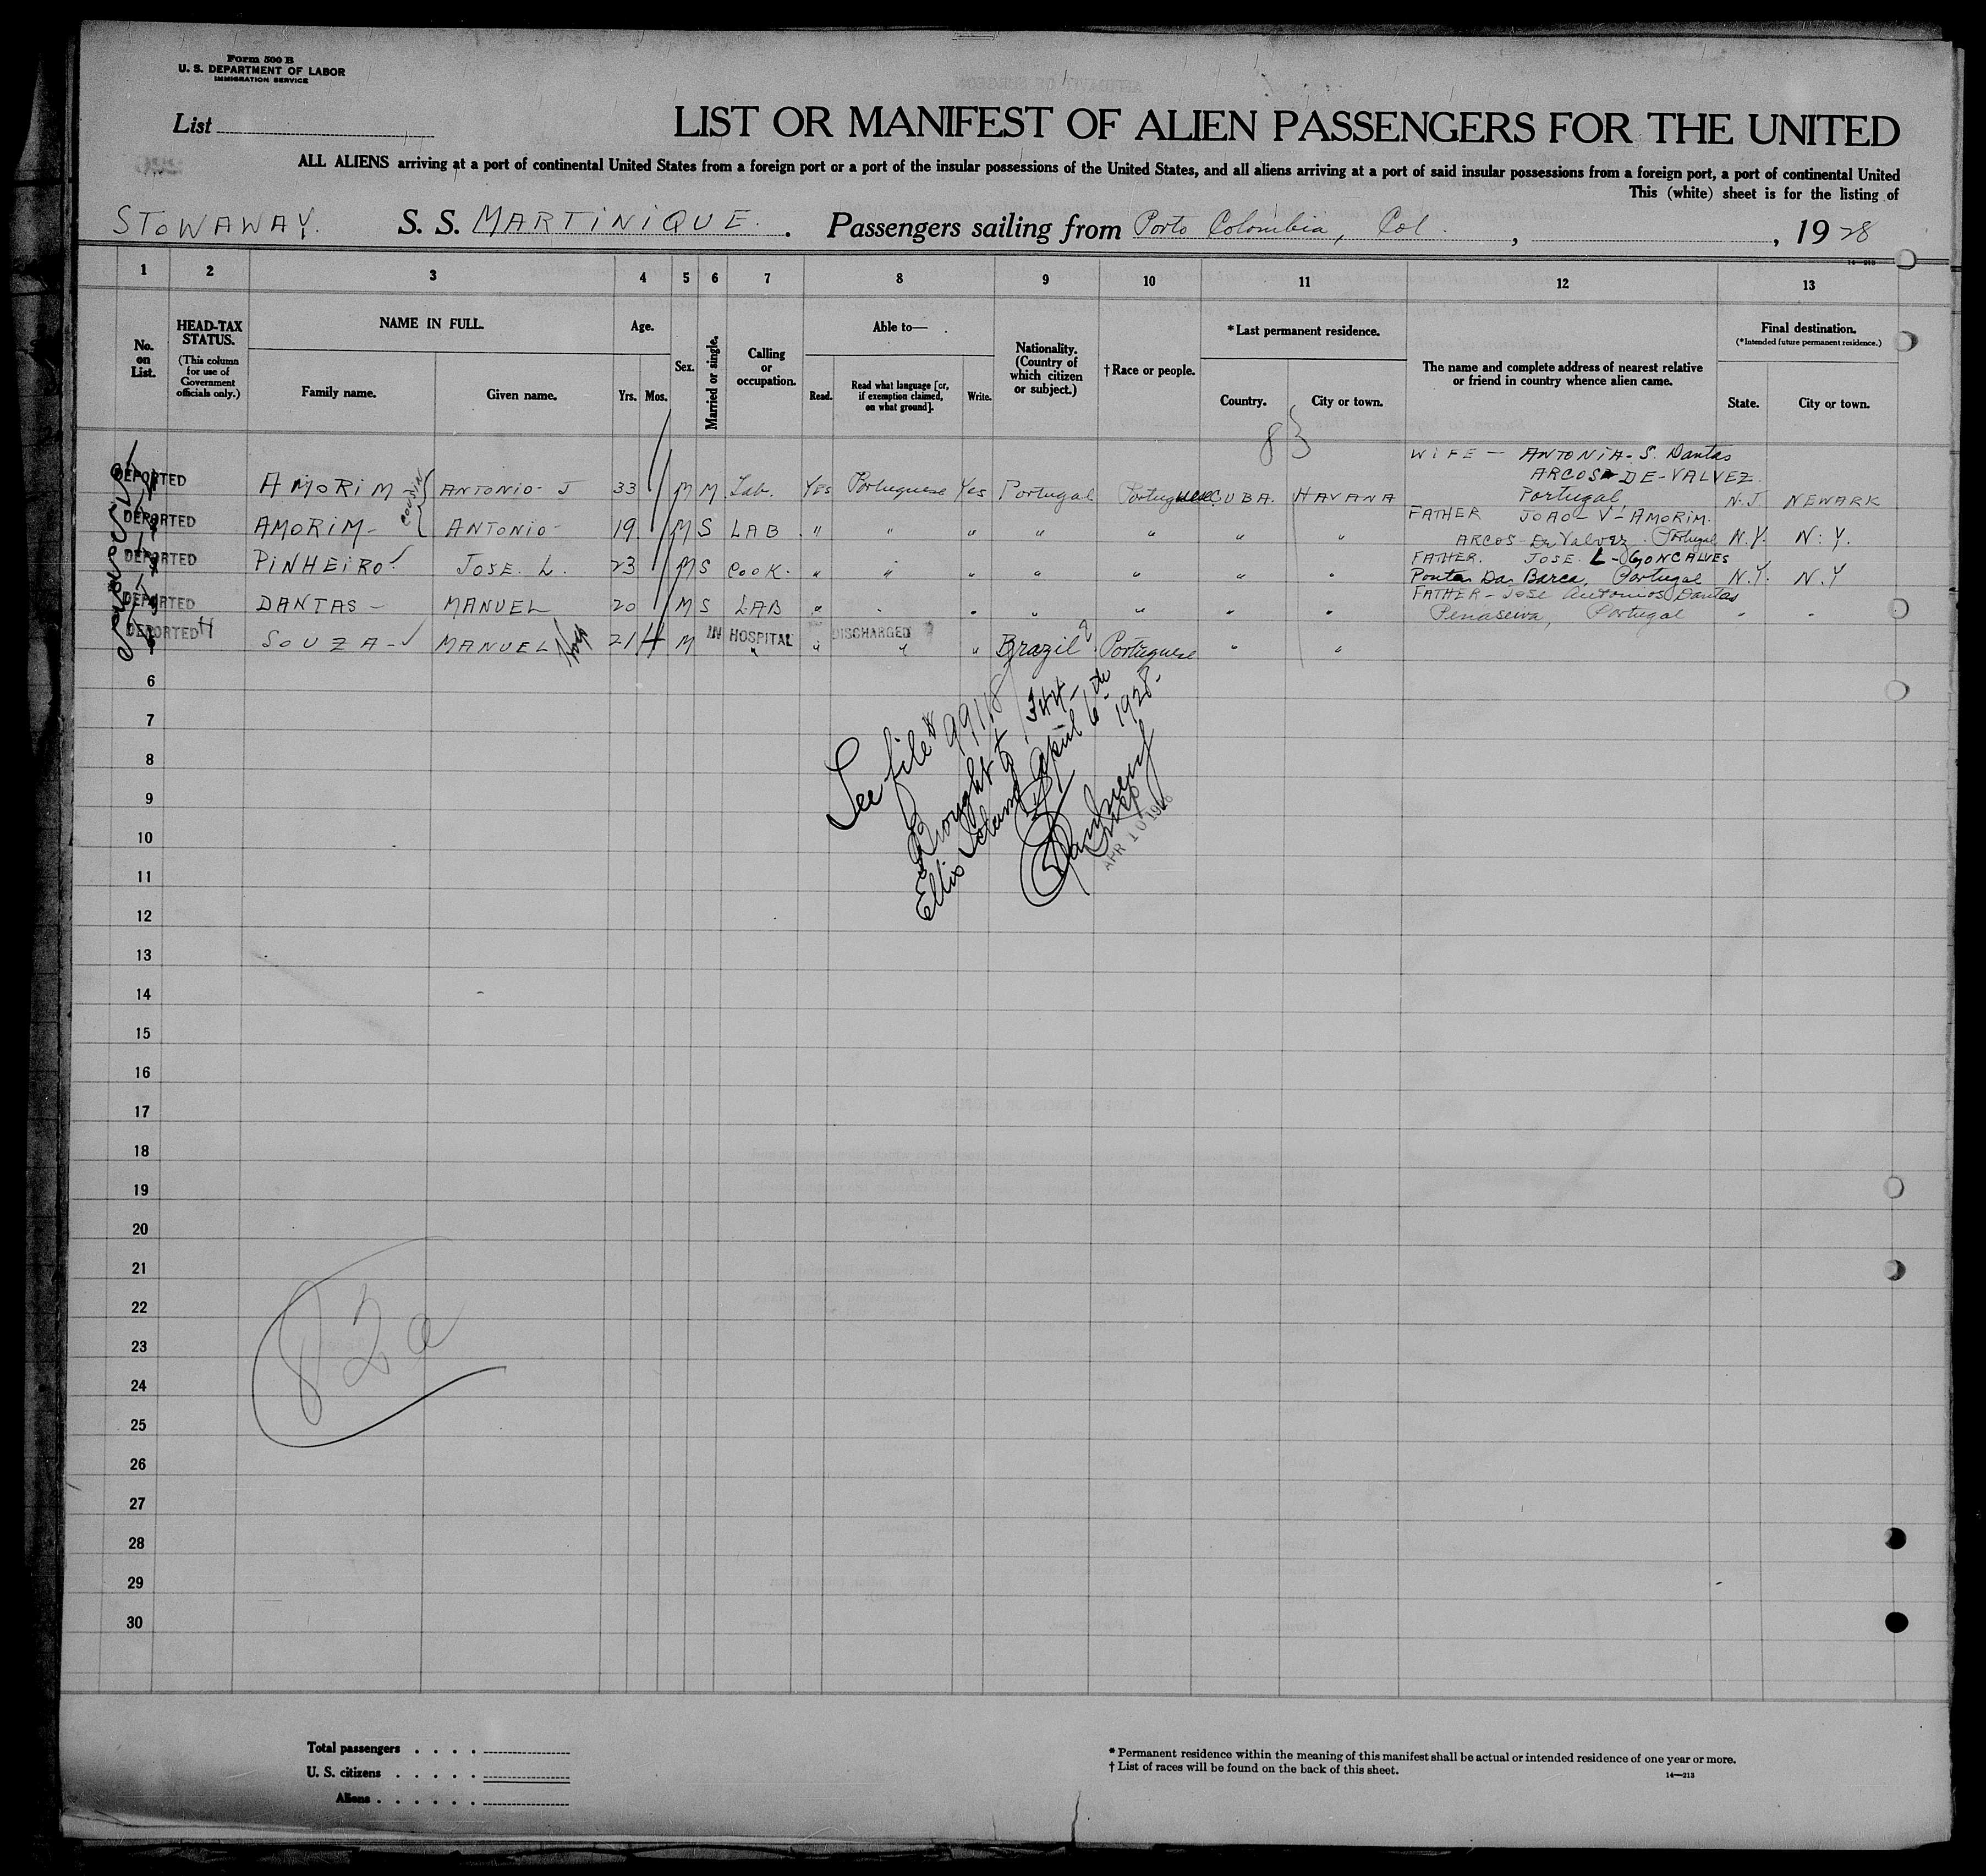 Form 500 B
U. S. DEPARTMENT OF LABOR
IMMIGRATION SERVICE
List
LIST OR MANIFEST OF ALIEN PASSENGERS FOR THE UNITED
ALL ALIENS arriving at a port of continental United States from a foreign port or a port of the insular possessions of the United States, and all aliens arriving at a port of said insular possessions from a foreign port, a port of continental United
This (white) sheet is for the listing of
STOWAWAY. S. S. MARTINIQUE. Passengers sailing from Porto Colombia, Col. , , 1928
14—213
1 2 3 4 5 6 7 8 9 10 11 12 13
No. on List.
HEAD-TAX STATUS.
(This column for use of Government officials only.)
NAME IN FULL.
Family name. Given name.
Age.
Yrs. Mos.
Sex.
Married or single.
Calling or occupation.
Able to—
Read. Read what language [or, if exemption claimed, on what ground]. Write.
Nationality. (Country of which citizen or subject.)
† Race or people.
* Last permanent residence.
Country. City or town.
The name and complete address of nearest relative or friend in country whence alien came.
Final destination.
(* Intended future permanent residence.)
State. City or town.
83
WIFE — ANTONIA - S. Dantas
ARCOS - DE - VALVEZ
Portugal
DEPORTED AMORIM - ANTONIO - J 33 M M Lab. Yes Portuguese Yes Portugal Portuguese CUBA. HAVANA N.J NEWARK
FATHER JOAO - V - AMORIM.
DEPORTED AMORIM - ANTONIO - 19 M S LAB " " " " " " " ARCOS De Valvez. Portugal N.Y. N.Y.
FATHER. JOSE L - GONCALVES
DEPORTED PINHEIRO JOSE. L. 23 M S COOK. " " " " " " " Ponte Da Barca, Portugal N.Y. N.Y
FATHER - JOSE Antonios Dantas
DEPORTED DANTAS - MANUEL 20 M S LAB " " " " " " " Penaseiva, Portugal " "
DEPORTED H SOUZA - MANUEL 21 M IN HOSPITAL DISCHARGED " " " " Brazil ? Portuguese " "
See file # 99118
Brought to
Ellis Island April 6th
1928-
APR 10 1928
6
7
8
9
10
11
12
13
14
15
16
17
18
19
20
21
22
23
24
25
26
27
28
29
30
82a
Total passengers . . . .
U. S. citizens . . . . .
Aliens . . . . . .
* Permanent residence within the meaning of this manifest shall be actual or intended residence of one year or more.
† List of races will be found on the back of this sheet.
14—213